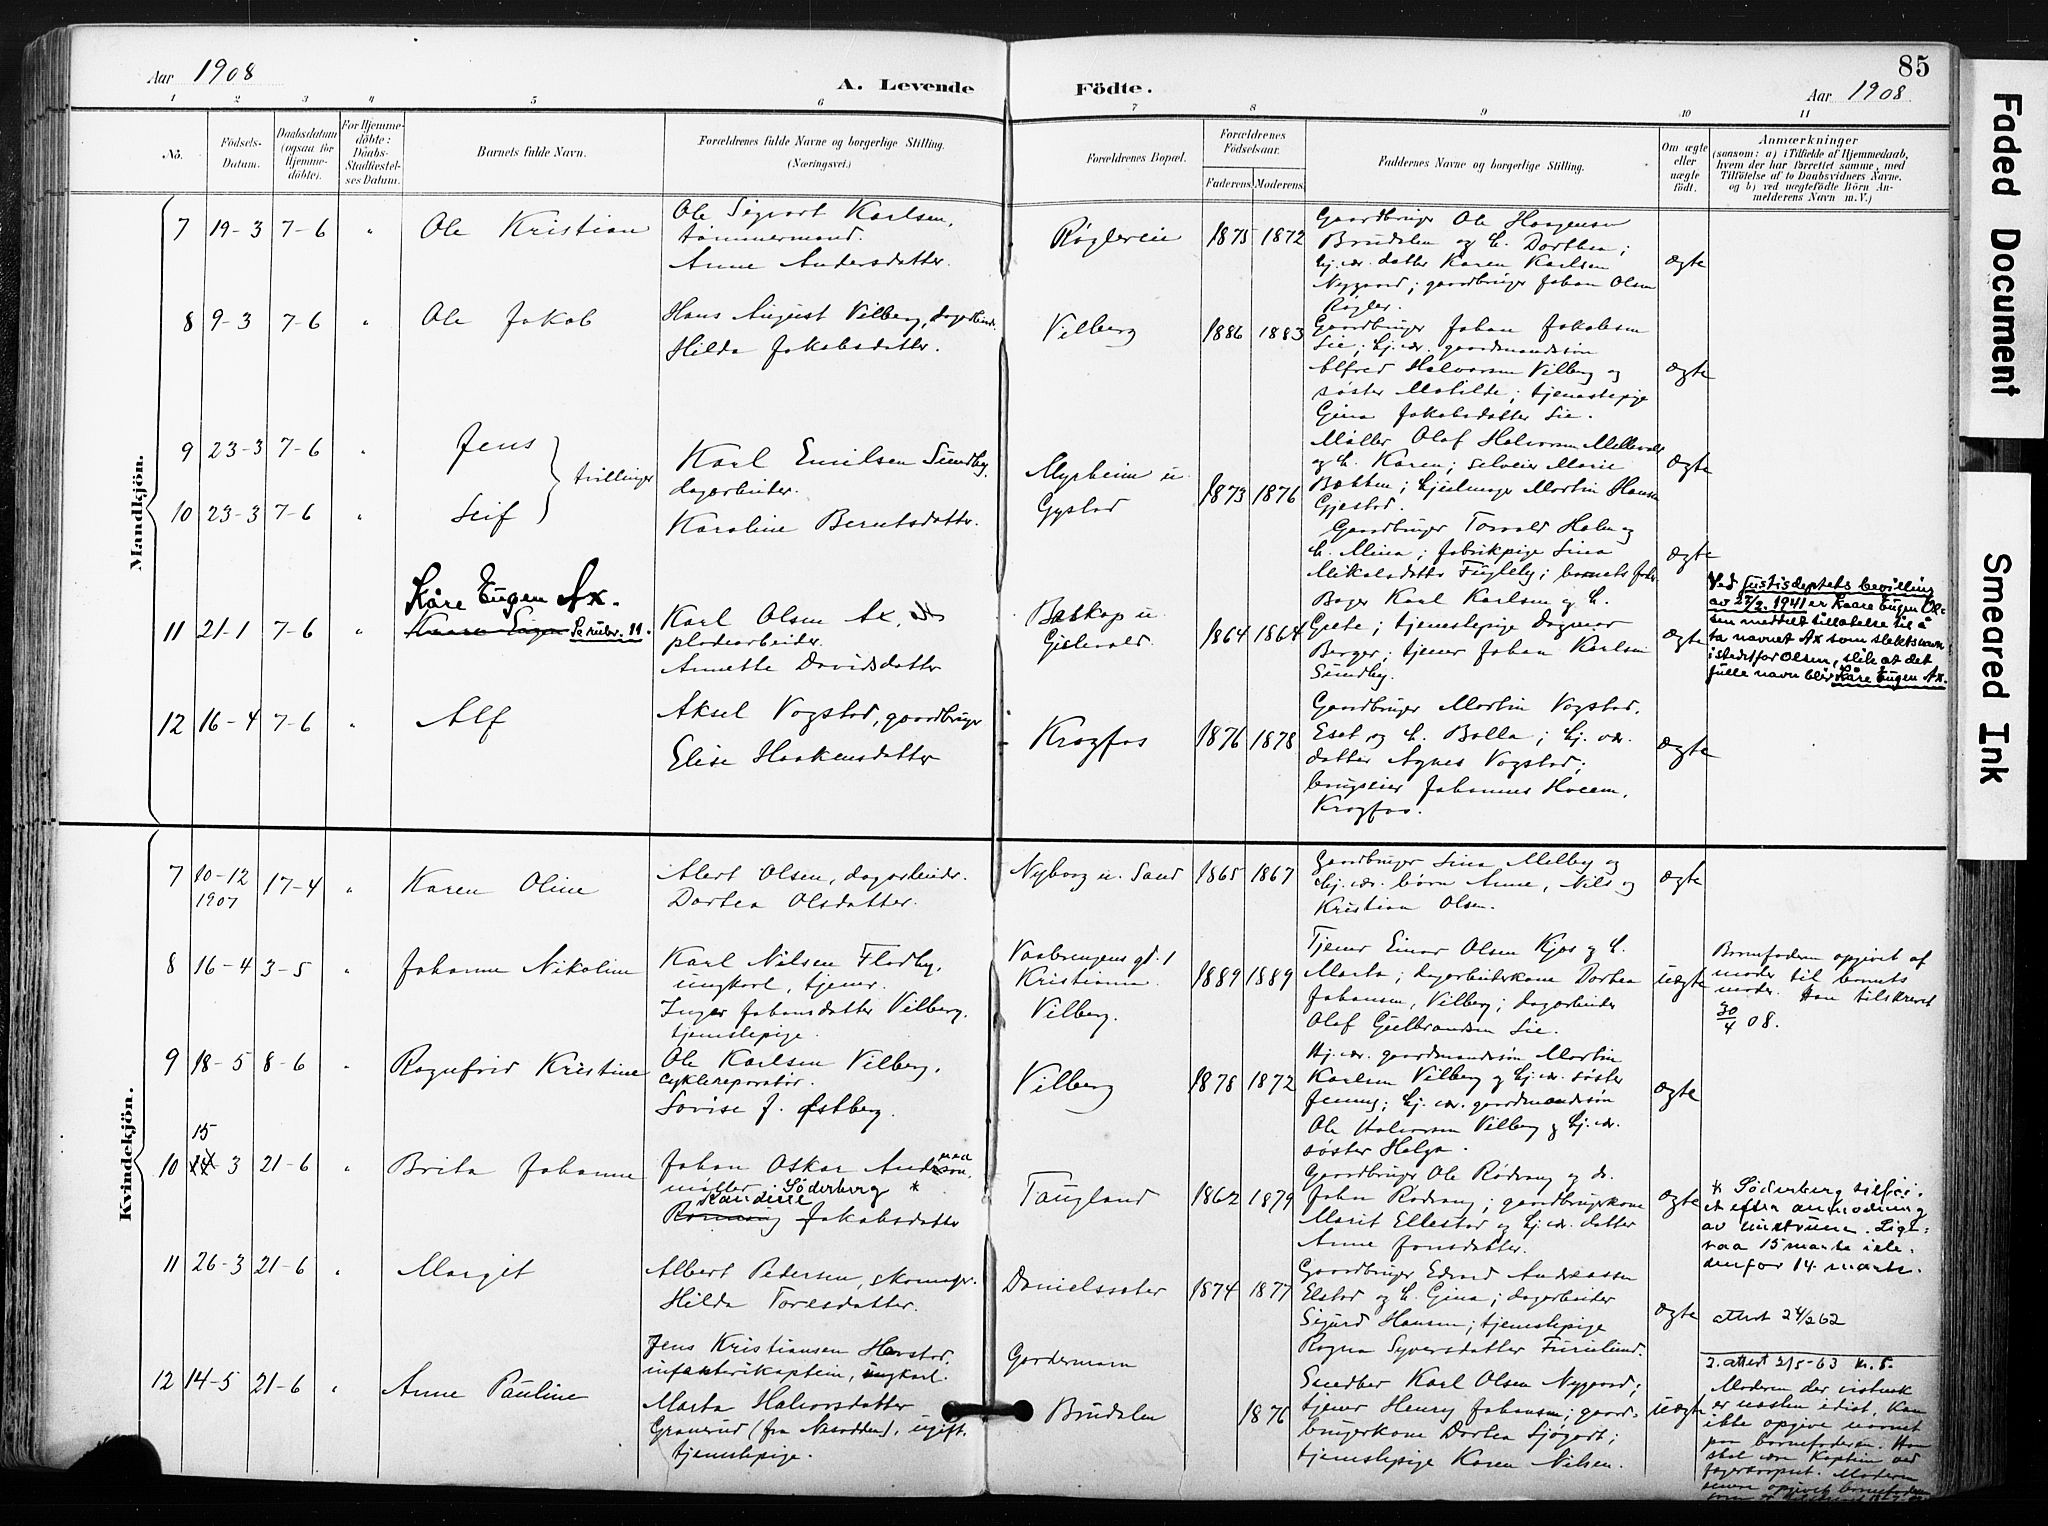 Aar 1908
A. Levende Födte.
85
Aar 1908
1 2 3 4 5 6 7 8 9 10 11
No.
Födsels-Datum.
Daabsdatum (ogsaa for Hjemme-döbte).
For Hjemme-döbte: Daabs-Stadfæstel-ses Datum.
Barnets fulde Navn.
Forældrenes fulde Navne og borgerlige Stilling.
(Næringsvei.)
Forældrenes Bopæl.
Forældrenes Födselsaar.
Faderens. Moderens.
Faddernes Navne og borgerlige Stilling.
Om ægte eller uægte født.
Anmærkninger
(saasom: a) i Tilfælde af Hjemmedaab,
hvem der har forrettet samme, med
Tilföielse af to Daabsvidners Navne,
og b) ved uægtefödte Börn An-
melderens Navn m. V.)
Mandkjön.
7 19-3 7-6 " Ole Kristian
Ole Sigvart Karlsen,
tømmermand.
Anne Andersdatter.
Røglereie 1875 1872
Gaardbruger Ole Haagensen
Brudalen og h. Dorthea;
hj. vær. datter Karen Karlsen
Nygaard; gaardbruger Johan Olsen
Røgler.
ægte
8 9-3 7-6 " Ole Jakob
Hans August Vilberg, dagarbeid.
Hilda Jakobsdatter.
Vilberg 1886 1883
Gaardbruger Johan Jakobsen
Lie; hj. vær. gaardmandssøn
Alfred Halvorsen Vilberg og
søster Matilde; tjenestepige
Gina Jakobsdatter Lie.
ægte
9 23-3 7-6 " Jens
10 23-3 7-6 " Leif
tvillinger
Karl Emilsen Sundby,
dagarbeider.
Karoline Berntsdatter.
Myrheim u.
Gystad
1873 1876
Møller Olaf Halvorsen
og h. Karen; selveier Marie
Bakken; Martin Hansen
Gjestad.
ægte
Gaardbruger Torvald Holm og
h. Mina; fabrikpige Lina
Mikalsdatter Fugleby; barnets fader
ægte
Kåre Eugen Ax.
11 21-1 7-6 " Kaare Eugen Se rubr. 11.
Karl Olsen Ax,
pladsarbeider.
Annette Davidsdatter
Baskop u.
1864 1864
Bager Karl Karlsen og h.
Grete; tjenestepige Dagmar
Berger; tjener Johan Karlsen
Sundby.
ægte
Ved Justisdeptets bevilling
av 27/2. 1941 er Kaare Eugen Ol-
sen meddelt tillatelse til å
ta navnet Ax som slektsnavn
istedetfor Olsen, slik at det
fulle navn blir Kåre Eugen Ax.
12 16-4 7-6 " Alf
Aksel Vogstad, gaardbruger
Elise Haakensdatter
Krogfos 1876 1878
Gaardbruger Martin Vogstad,
og h. Balla; hj. vær.
datter Agnes Vogstad;
brugseier Johannes
Krogfos.
ægte
Kvindekjön.
7 10-12 1907 17-4 " Karen Oline
Alert Olsen, dagarbeider.
Dortea Olsdatter.
Nyborg u. Sand 1865 1867
Gaardbruger Lina Melby og
hj. vær. børn Anne, Nils og
Kristian Olsen.
ægte
8 16-4 3-5 " Johanne Nikoline
Karl Nilsen Fladby,
ungkarl, tjener.
Inger Johansdatter Vilberg,
tjenestepige.
Vaalerengens gd. 1
Kristiania.
Vilberg.
1889 1889
Tjener Einar Olsen Kjos og h.
Marta; dagarbeiderkone Dortea
Johansen, Vilberg; dagarbeider
Olaf Gulbrandsen Lie.
uægte
Barnefaderen opgivet af
moder til barnets
moder. Han tilskrevet
30/4 08.
9 18-5 8-6 " Ragnfrid Kristine
Ole Karlsen Vilberg,
cyklereparatør.
Lovise J. Østberg.
Vilberg 1878 1872
Hj. vær. gaardmandssøn Martin
Karlsen Vilberg og hj. vær. søster
Jenny; hj. vær. gaardmandssøn
Ole Halvorsen Vilberg og hj. vær.
søster Helga.
ægte
15
10 14-3 21-6 " Brita Johanne
Johan Oskar Anderson,
møller. Söderberg *
Randine
Jakobsdatter
Taugland 1862 1879
Gaardbruger Ole Rødvang og
John Rødvang; gaardbrugerkone
Marit Ellestad og hj. vær. datter
Anne Jonsdatter.
ægte
* Söderberg tilføi-
et efter anmodning
av
15 marts iste-
denfor 14. marts.
11 26-3 21-6 " Margit
Albert Pedersen, skomager.
Hilda Toresdatter.
Danielssæter 1874 1877
Gaardbruger Edvard Andreassen
Elstad og h. Gina; dagarbeider
Sigurd Hansen; tjenestepige
Ragna Syversdatter Furulund.
ægte
attest 24/2 62
12 14-5 21-6 " Anne Pauline
Jens Kristiansen Havstad,
infanterikaptein, ungkarl.
Marta Halvorsdatter
Granerud (fra Næsodden), ugift
tjenestepige.
Gardermoen
Brudalen
1876
Smedber Karl Olsen Nygaard;
tjener Henry Johansen; gaard-
brugerkone Dortea Sjøgart;
tjenestepige Karen Nilsen.
uægte
2. attest 2/5-63 kr. 5.
Moderen der
er næsten idiot, kan
ikke opgive navnet
paa barnefaderen. Han
skal være Kaptein ved
Moderen
senere opgivet barnefaderen
Faded Document
Smeared Ink